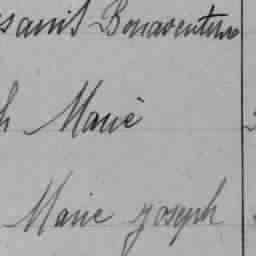 Bonaventure
h Marie
Marie joseph